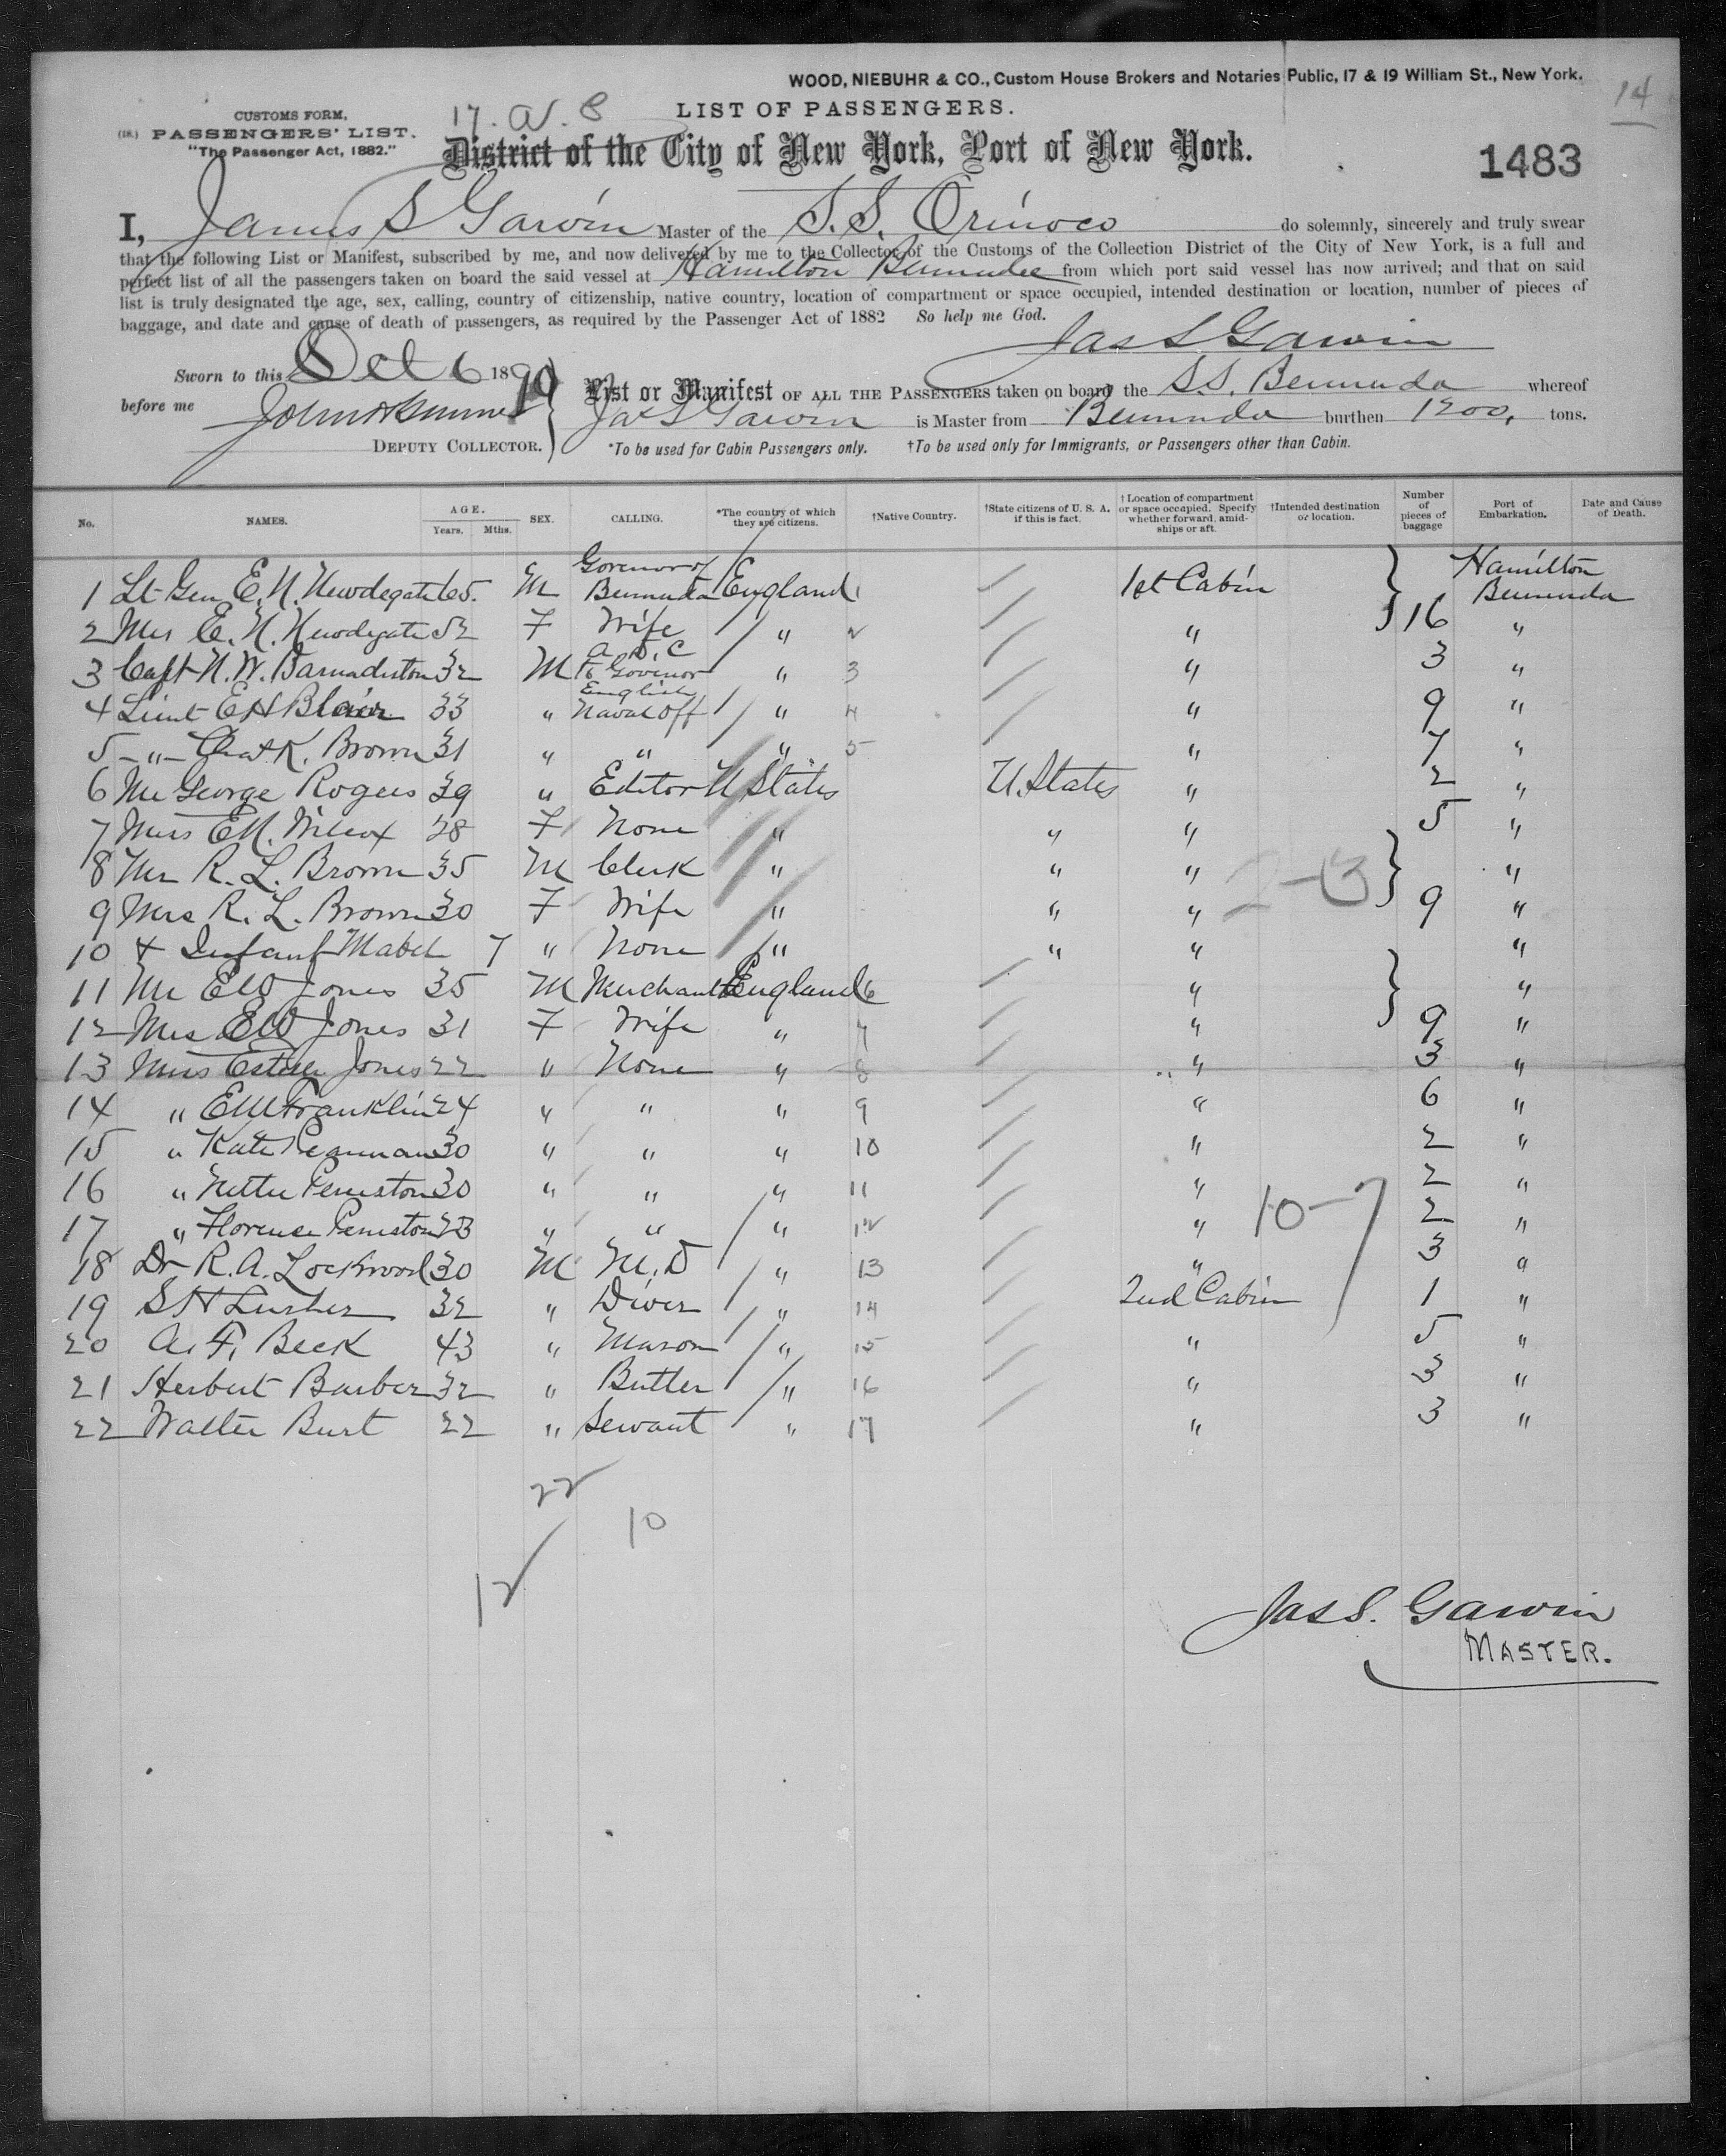 WOOD, NIEBUHR & CO., Custom House Brokers and Notaries Public, 17 & 19 William St., New York.
14
CUSTOMS FORM,
(18.) PASSENGERS' LIST.
"The Passenger Act, 1882."
LIST OF PASSENGERS.
District of the City of New York, Port of New York.
1483
I, James S Garvin Master of the S.S. Orinoco do solemnly, sincerely and truly swear
that the following List or Manifest, subscribed by me, and now delivered by me to the Collector of the Customs of the Collection District of the City of New York, is a full and
perfect list of all the passengers taken on board the said vessel at Hamilton Bermuda from which port said vessel has now arrived; and that on said
list is truly designated the age, sex, calling, country of citizenship, native country, location of compartment or space occupied, intended destination or location, number of pieces of
baggage, and date and cause of death of passengers, as required by the Passenger Act of 1882 So help me God.
Jas S Garvin
Sworn to this Oct 6 1890
before me
DEPUTY COLLECTOR.
List or Manifest OF ALL THE PASSENGERS taken on board the S.S. Bermuda whereof
Jas S Garvin is Master from Bermuda burthen 1200, tons.
*To be used for Cabin Passengers only. †To be used only for Immigrants, or Passengers other than Cabin.
No. NAMES. AGE. Years. Mths. SEX. CALLING. *The country of which they are citizens. †Native Country. †State citizens of U. S. A. if this is fact. †Location of compartment or space occupied. Specify whether forward, amidships or aft. †Intended destination or location. Number of pieces of baggage Port of Embarkation. Date and Cause of Death.
1 Lt Gen E. N. Newdegate 65. M Govenor of Bermuda England 1 1st Cabin Hamilton Bermuda
2 Mrs E. N. Newdegate 52 F Wife " 2 " 16 "
3 Capt N. W. Barnardiston 32 M A D C to Govenor " 3 " 3 "
4 Lieut E H Blair 33 " English Naval Off " 4 " 9 "
5 - " - Chas K. Brown 31 " " " 5 " 7 "
6 Mr George Rogers 39 " Editor U States U. States " 2 "
7 Miss E M. Wilcox 28 F None " " " 5 "
8 Mr R. L. Brown 35 M Clerk " " " "
9 Mrs R. L. Brown 30 F Wife " " " 9 "
10 + Infant Mabel 7 " None " " " "
11 Mr E W Jones 35 M Merchant England 6 " "
12 Mrs E W Jones 31 F Wife " 7 " 9 "
13 Miss Estelle Jones 22 " None " 8 " 3 "
14 " E M Franklin 24 " " " 9 " 6 "
15 " Kate 30 " " " 10 " 2 "
16 " Nettie Peniston 30 " " " 11 " 2 "
17 " Florence Peniston 23 " " " 12 " 2 "
18 Dr R. A. Lockwood 30 M M. D " 13 " 3 "
19 S H Lusher 32 " Diver " 14 2nd Cabin 1 "
20 A. F. Beck 43 " Mason " 15 " 5 "
21 Herbert Barber 32 " Butler " 16 " 3 "
22 Walter Burt 22 " Servant " 17 " 3 "
2-13
10-7
22
10
12
Jas S. Garvin
MASTER.